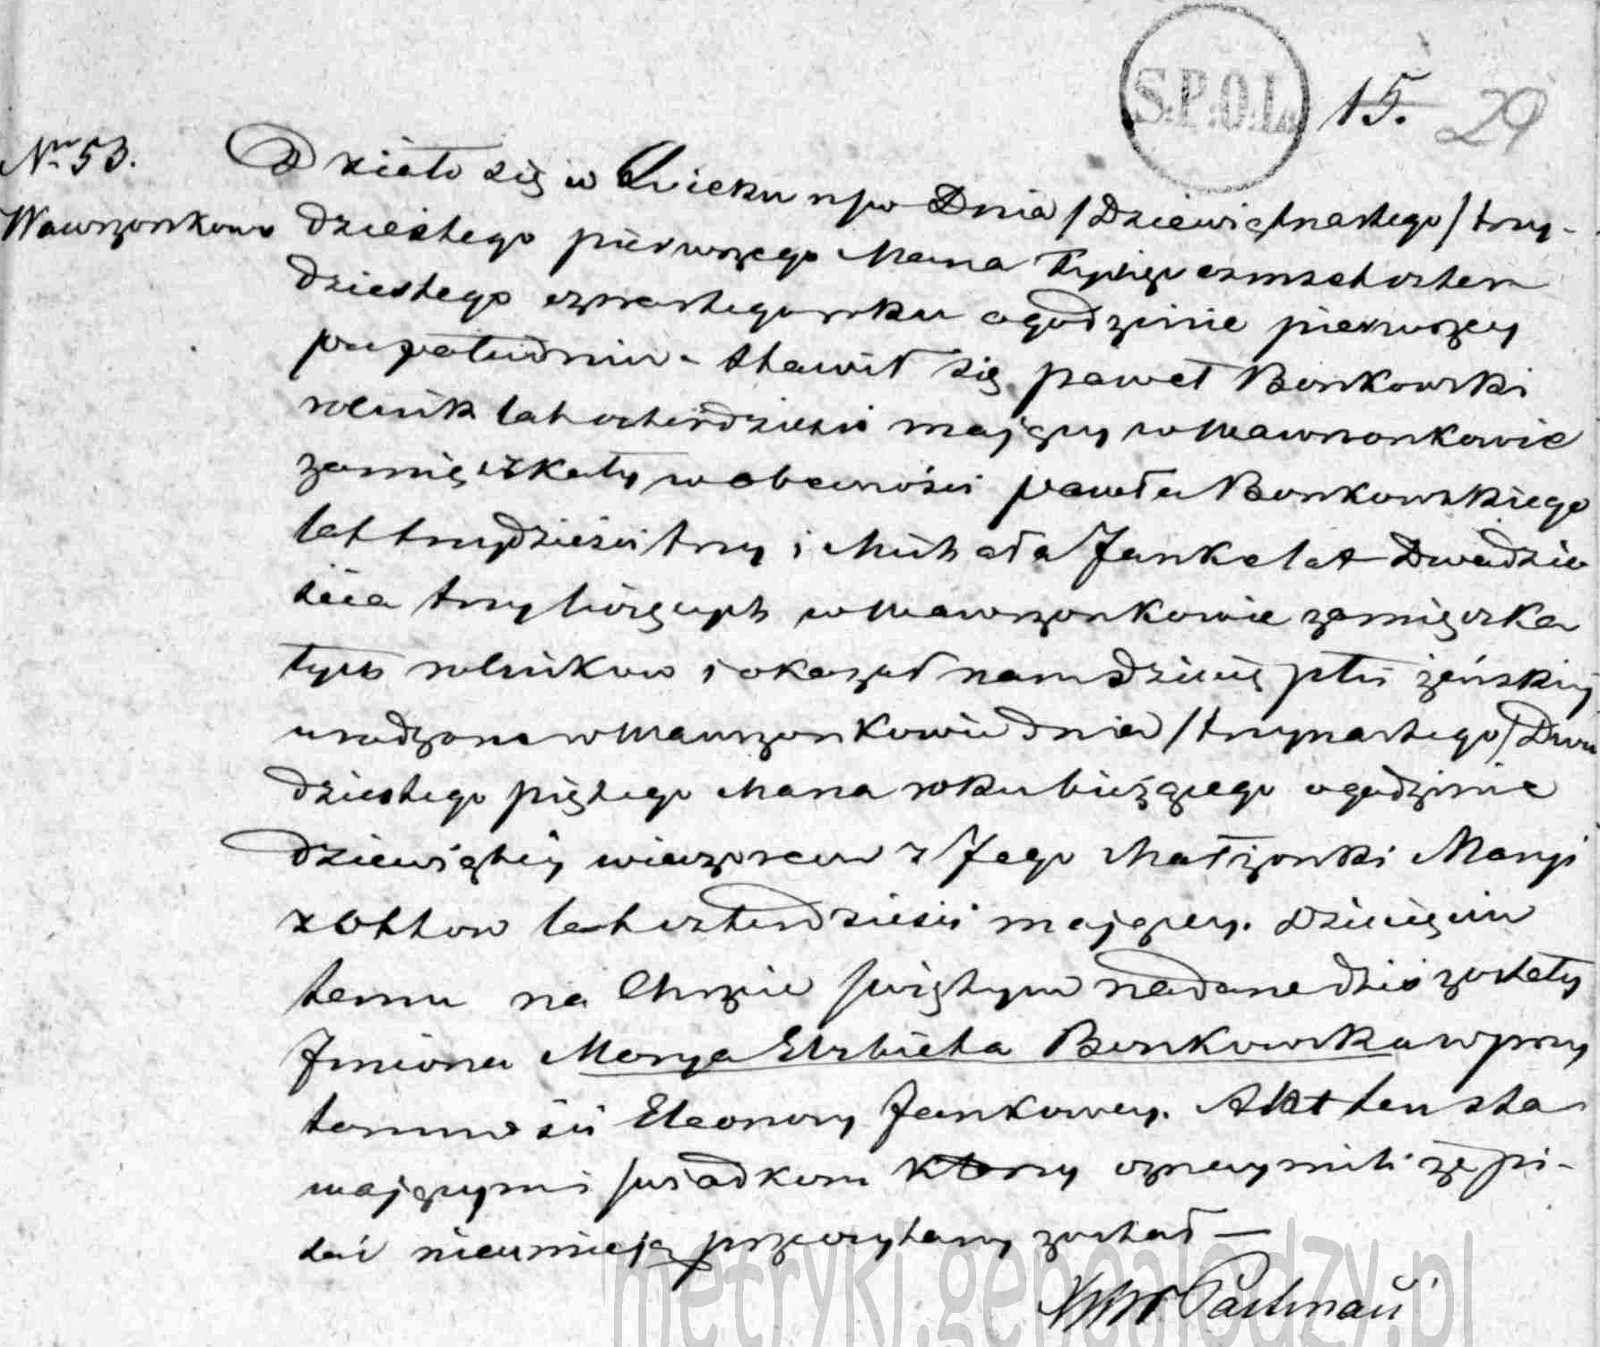 S.P.O.L.
15. 29
Nr 53. Działo się w Lviecku n/w Dnia /Dziewiętnastego/ trzy-
Wawrzonkowo dziestego pierwszego Marca Tysiąc osmset czter
dziestego czwartego roku o godzinie pierwszey
po południu - Stawił się paweł Bonkowski
rolnik lat czterdzieści maiący w Wawrzonkowie
zamięszkały w obecności pawła Bonkowskiego
lat trzydzieści trzy i Michała Janke lat Dwadzie
ścia trzy liczących w Wawrzonkowie zamięszka
łych rolników i okazał nam dziecię płci żeńskiej
urodzone w Wawrzonkowie dnia /trzynastego/ Dwu
dziestego piątego Marca roku bieżącego o godzinie
dziewiątey wieczorem z Jego Małżonki Maryi
z Ottow lat czterdzieści maiącey. Dziecięciu
temu na Chrzcie świętym nadane dziś zostały
Imiona Marya Elzbieta Bonkowska w przy
tomności Eleonory Jankowey. Akt ten sta
waiącymi świadkom ktory oznaymili że pi-
sać nieumieią przeczytany został —
Partnau
metryki.genealodzy.pl